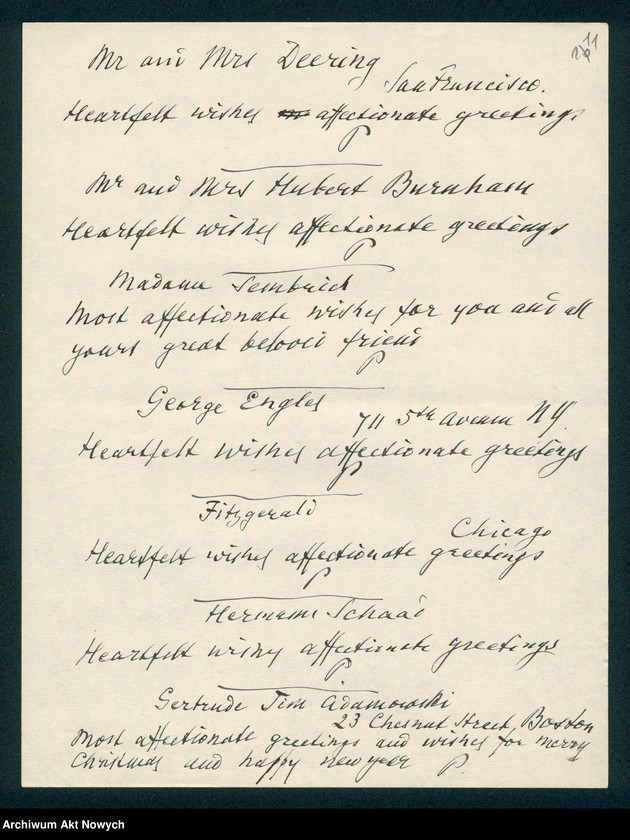 11
26
Mr and Mrs Deering
San Francisco.
Heartfelt wishes affectionate greetings
P
Mr and Mrs Hubert Burnham
Heartfelt wishes affectionate greetings
P
Madame Sembrich
Most affectionate wishes for you and all
yours great beloved friend
P
George Engles
711 5th Avenue NY.
Heartfelt wishes affectionate greetings
P
Fitzgerald
Chicago
Heartfelt wishes affectionate greetings
P
Hermann Schaad
Heartfelt wishes affectionate greetings
P
Gertrude Tim Adamowski
23 Chesnut Street, Boston
Most affectionate greetings and wishes for merry
Christmas and happy new year P.
Archiwum Akt Nowych